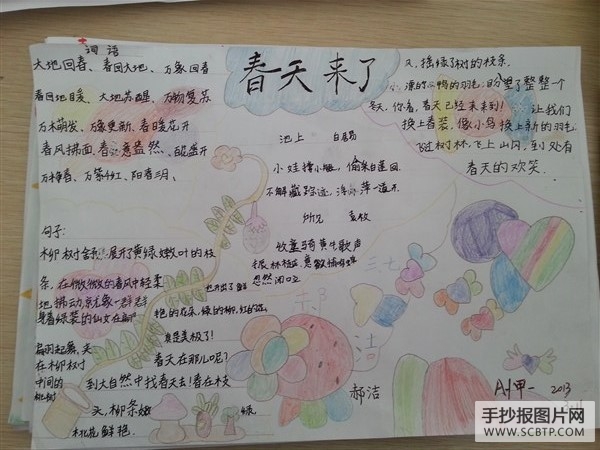 春天来了
词语
大地回春、春回大地、万象回春
春回地暖、大地苏醒、万物复苏
万木萌发、万象更新、春暖花开
春风拂面、春意盎然、
阳春三月、
句子:
柳树舒展开了黄绿嫩叶的枝
条,在微微的春风中轻柔
地拂动,就像一群群
身着绿装的仙女在
翩翩起舞。夹
在柳树
中间的
桃树
艳的花朵,绿的柳,红的花,
真是美极了!
春天在那儿呢?
到大自然中找春天去!春在枝
头,柳条
桃花鲜艳.
池上
小娃撑小艇,偷采白莲回
不解藏踪迹,浮萍一道开
所见 袁枚
牧童骑黄牛歌声
振林樾 意欲捕鸣蝉
忽然闭口立
风,摇绿了树的枝条.
水,漂白了鸭的羽毛,盼望了整整一个
冬天,你看,春天已经来到!
让我们
换上春装,像小鸟换上新的羽毛
飞过树林,飞上山冈,到处有
春天的欢笑.
三、七
郝
洁
郝洁
2013
手抄报图片网
WWW.SCBTP.COM